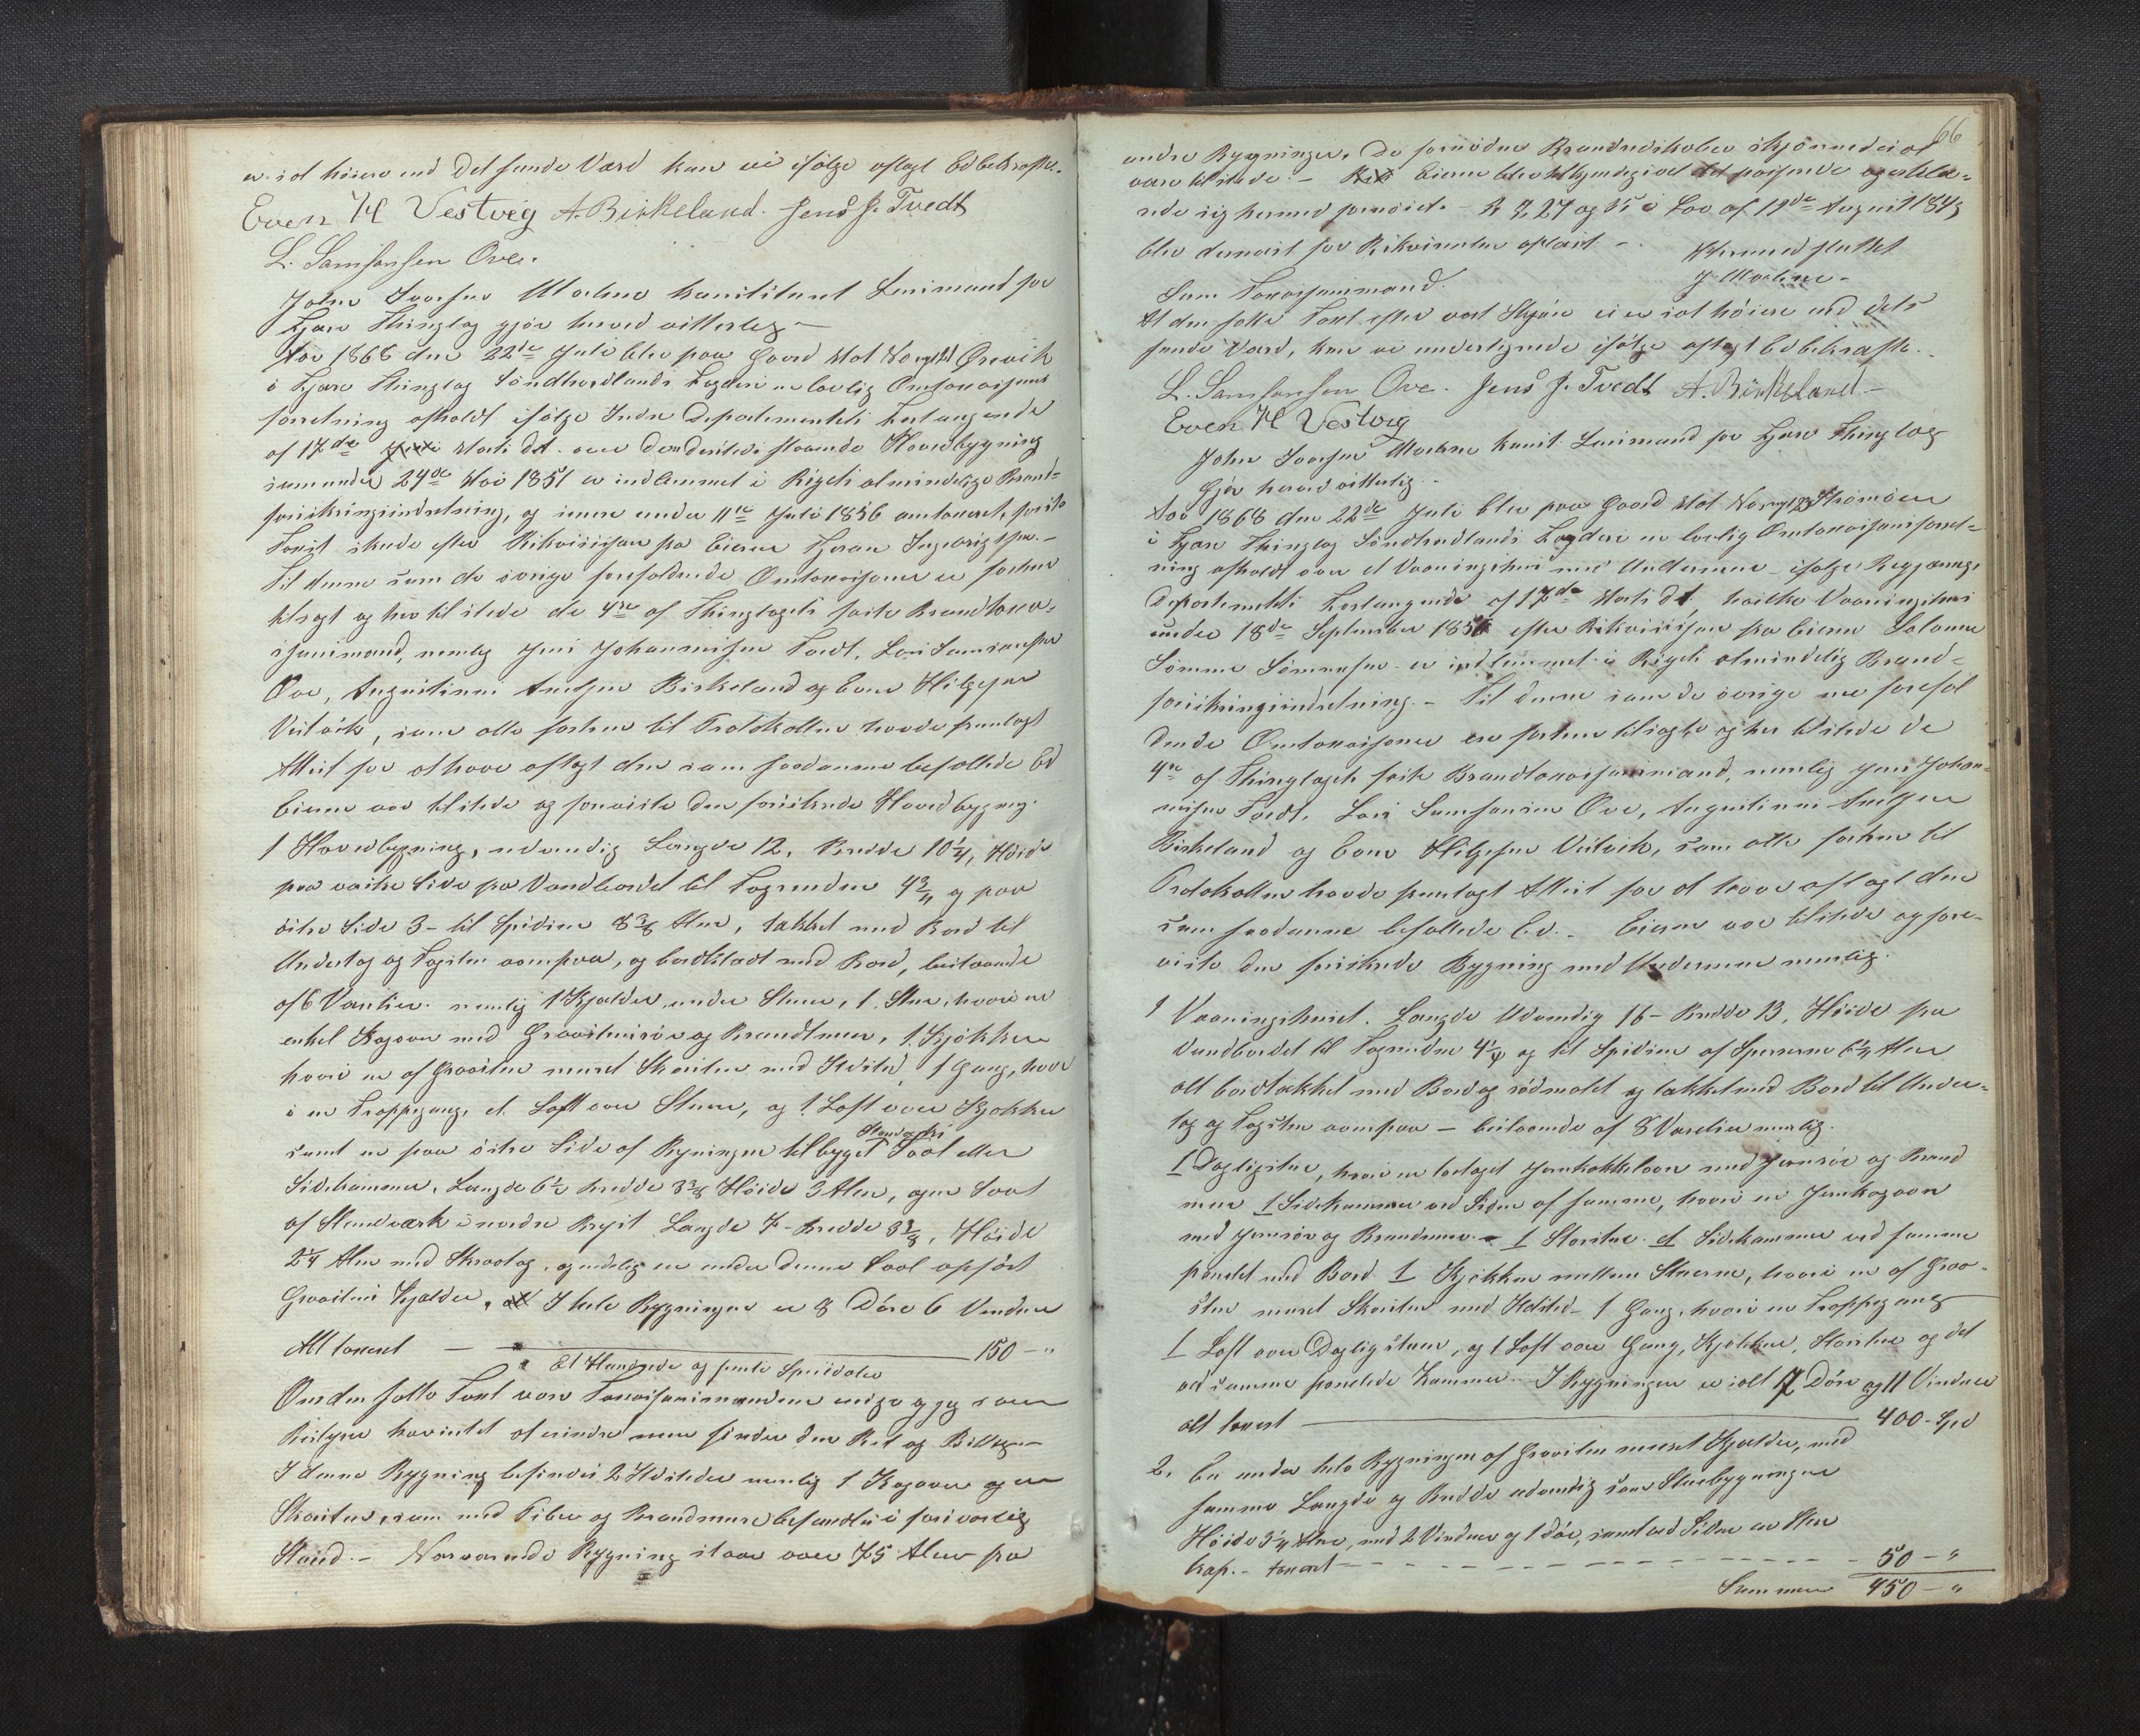 er iat høiere end det sande Værd kan vi ifølge aflagt Ed bekræfte.
Even H Vestvig A. Birkeland. Jens J. Tvedt
L. Samsonsen Ove.
John Iversen Maelene konstitueret Lensmand for
Fjære Thinglag gjør herved vitterlig –
Aar 1868 den 22de Juli blev paa Gaard Mat No Ørevik
i Fjære Thinglag Søndhordlands Fogderi en lovlig Omtaxasjons
forretning afholdt ifølge Indre Departementets Forlangende
af 17de Marts d.A. over den dersteds staaende Hovedbygning
som under 24de Mai 1851 er indlemmet i Rigets almindelige Brand-
forsikringsindretning, og senere under 11te Juli 1856 omtaxeret, første
Taxt skede efter Rikvisisjon fra Eieren
Til denne som de øvrige forefaldende Omtaxasjoner er forhen
tilsagt og her til stede de 4re af Thinglagets faste Brandtaxa-
sjonsmænd, nemlig Jens Johannessen Tvedt, Lars Samsonsen
Ove, Augustinus Amelsen Birkeland og Even Helgesen
Vestvik, som alle forhen til Protokollen havde fremlagt
Attest for at have aflagt den som saadanne befallede Ed
Eieren var tilstede og foreviste den forsikrede Hovedbygning.
1 Hovedbygning, udvendig Længde 12, Bredde 10 1/4, Høide
paa vestre Side fra Vandbordet til Tagrenden 4 3/4 og paa
østre Side 3 – til Spidsen 8 3/8 Alen, takket med Bord til
Undertag og Tagsten ovenpaa, og bordklædt med Bord, bestaaende
af 6 Værelser. nemlig 1 Kjælder under Stuen, 1 Stue, hvori en
enkel Kogovn med Graastensrør og Brandtmur, 1 Kjøkken
hvori en af Graasten muret Skorsten med Ildsted, 1 Gang, hvor
i en Trappegang, et Loft over Stuen, og 1 Loft over Kjøkken
samt en paa østre Side af Bygningen tilbygget Sval eller
Sidekammer, Længde 6 1/2 Bredde 3 3/8 Høide 3 Alen, og en Sval
af Stenværk i nordre Længde 7 – Bredde 3 3/8, Høide
2 1/4 Alen med Skraatag, og endelig en under denne Sval opført
Graastens Kjælder. I hele Bygningen er 8 Døre 6 Vinduer
Alt taxeret – 150 – "
Et Hundrede og femti Speciedaler
Om den satte Taxt vare Taxasjonsmændene enige og jeg som
Bestyrer har intet at erindre men finder den Ret og Billig –
I denne Bygning befindes 2 Ildsteder nemlig 1 Kogovn og en
Skorsten, som med Piber og Brandmure befandtes i forsvarlig
Stand. – Nærværende Bygning staar over 75 Alen fra
66
andre Bygninger. De fornødne Brandredskaber skjønnedes at
være tilstede. – Eieren blev bekjendtgjort det passerede og erklæ-
rede sig hermed fornøiet. – § 27 og 35 i Lov af 19de August 1845
blev dernæst for Rikvirenten oplæst. –
Hermed sluttet
J. Maelene –
Som Taxasjonsmænd.
At den satte Taxt efter vort Skjøn ei er sat høiere end dets
sande Værd, kan vi undertegnede ifølge aflagt Ed bekræfte.
L. Samsonsen Ove. Jens J. Tvedt A. Birkeland –
Even H Vestvig
John Iversen Maelene konst. Lensmand for Fjære Thinglag
Gjør herved vitterlig –
Aar 1868 den 22de Juli blev paa Gaard Mat No Strømøen
i Fjære Thinglag Søndhordlands Fogderi en lovlig Omtaxasjonsforret-
ning afholdt over et Vaaningshus med Understuen – ifølge Regjerings
Departementets Forlangende af 17de Marts d.A., hvilke Vaaningshus
under 18de September 1856 efter Rikvisisjon fra Eieren Salamon
Sømme Sømmesen er indlemmet i Rigets almindelig Brand-
forsikringsindretning. – Til denne som de øvrige nu forefal
dende Omtaxasjoner ere forhen tilsagte og her tilstede de
4re af Thinglagets faste Brandtaxasjonsmænd, nemlig Jens Johan-
nessen Tvedt, Lars Samsonsen Ove, Augustinus Amelsen
Birkeland og Even Helgesen Vestvik, som alle forhen til
Protokollen havde fremlagt Attest for at have aflagt den
som saadanne befallede Ed. – Eieren var tilstede og fore-
viste den forsikrede Bygning med Understuen nemlig.
1 Vaaningshuset. Længde Udvendig 16 – Bredde 13, Høide fra
Vandbordet til Tagrenden 4 1/4 og til Spidsen af Sperrerne 6 1/4 Alen
alt bordtækket med Bord og rødmalet og takket med Bord til Under-
tag og Tagsten ovenpaa – bestaaende af 8 Værelser nemlig.
1 Dagligstue, hvori en toetages Jernkakkelovn med Jernrør og Brand
mur 1 Sidekammer ved Siden af samme, hvori en Jernkogovn
med Jernrør og Brandmur – 1 Storstue et Sidekammer ved samme
panelet med Bord 1 Kjøkken mellem Stuerne, hvori en af Graa-
sten muret Skorsten med Ildsted – 1 Gang, hvori en Trappegang
1 Loft over Dagligstuen, og 1 Loft over Gang, Kjøkken, Storstue og det
ved samme panelede Kammer. I Bygningen er ialt 17 Døre og 11 Vinduer
alt taxert – 400 – Spd
2. En under hele Bygningen af Graasten muret Kjælder, med
samme Længde og Bredde udvendig som Stuebygningen
Høide 3 1/4 Alen, med 2 Vinduer og 1 Dør, samt ved Siden en Sten
trap. – taxeret – – – – – 50 – "
Summen 450 – "